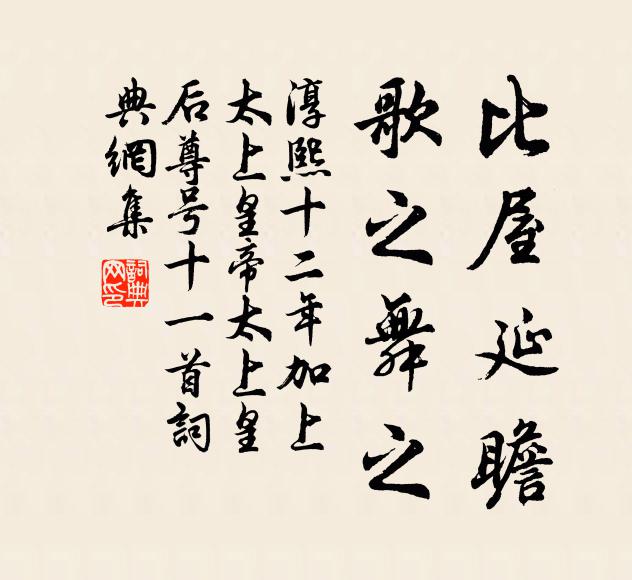 比屋延瞻
歌之舞之
淳熙十二年加上
太上皇帝太上皇
后尊号十一首詞
典網集
詞典
网印